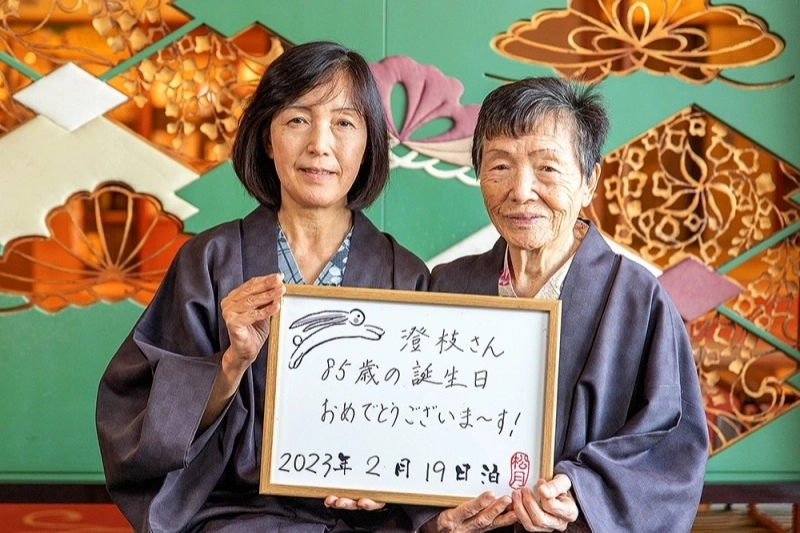 澄枝さん
85歳の誕生日
おめでとうございま〜す!
2023年2月19日泊
松月